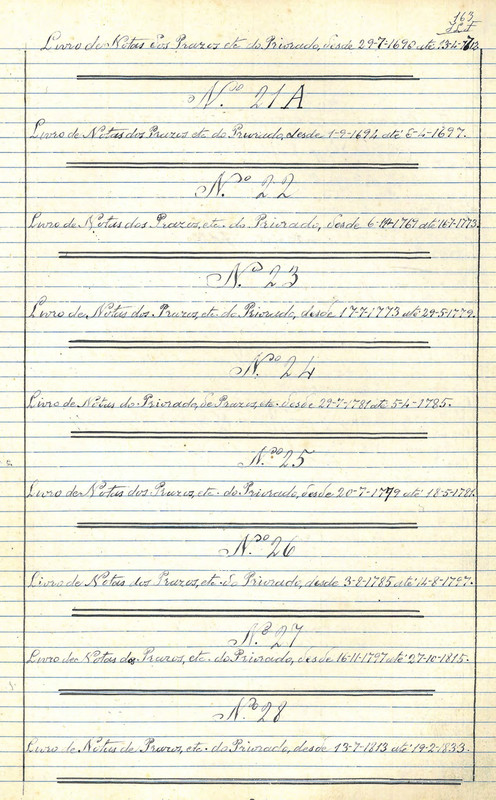 163
Livro de Notas dos Prazos, etc. do Priorado, desde 29-7-1690 até 13-4-1713.
N.º 21 A
Livro de Notas dos Prazos etc. do Priorado, desde 1-9-1694 até 8-4-1697.
N.º 22
Livro de Notas dos Prazos, etc. do Priorado, desde até 16-7-1773.
N.º 23
Livro de Notas dos Prazos, etc. do Priorado, desde 17-7-1773 até 29-5-1779.
N.º 24
Livro de Notas do Priorado, de Prazos, etc. desde 29-7-1781 até 5-4-1785.
N.º 25
Livro de Notas dos Prazos, etc. do Priorado, desde 20-7-1779 até 18-5-1781.
N.º 26
Livro de Notas dos Prazos, etc. do Priorado, desde 3-8-1785 até 14-8-1797.
N.º 27
Livro de Notas de Prazos, etc. do Priorado, desde 16-11-1797 até 27-10-1815.
N.º 28
Livro de Notas de Prazos, etc. do Priorado, desde 13-7-1813 até 19-2-1833.